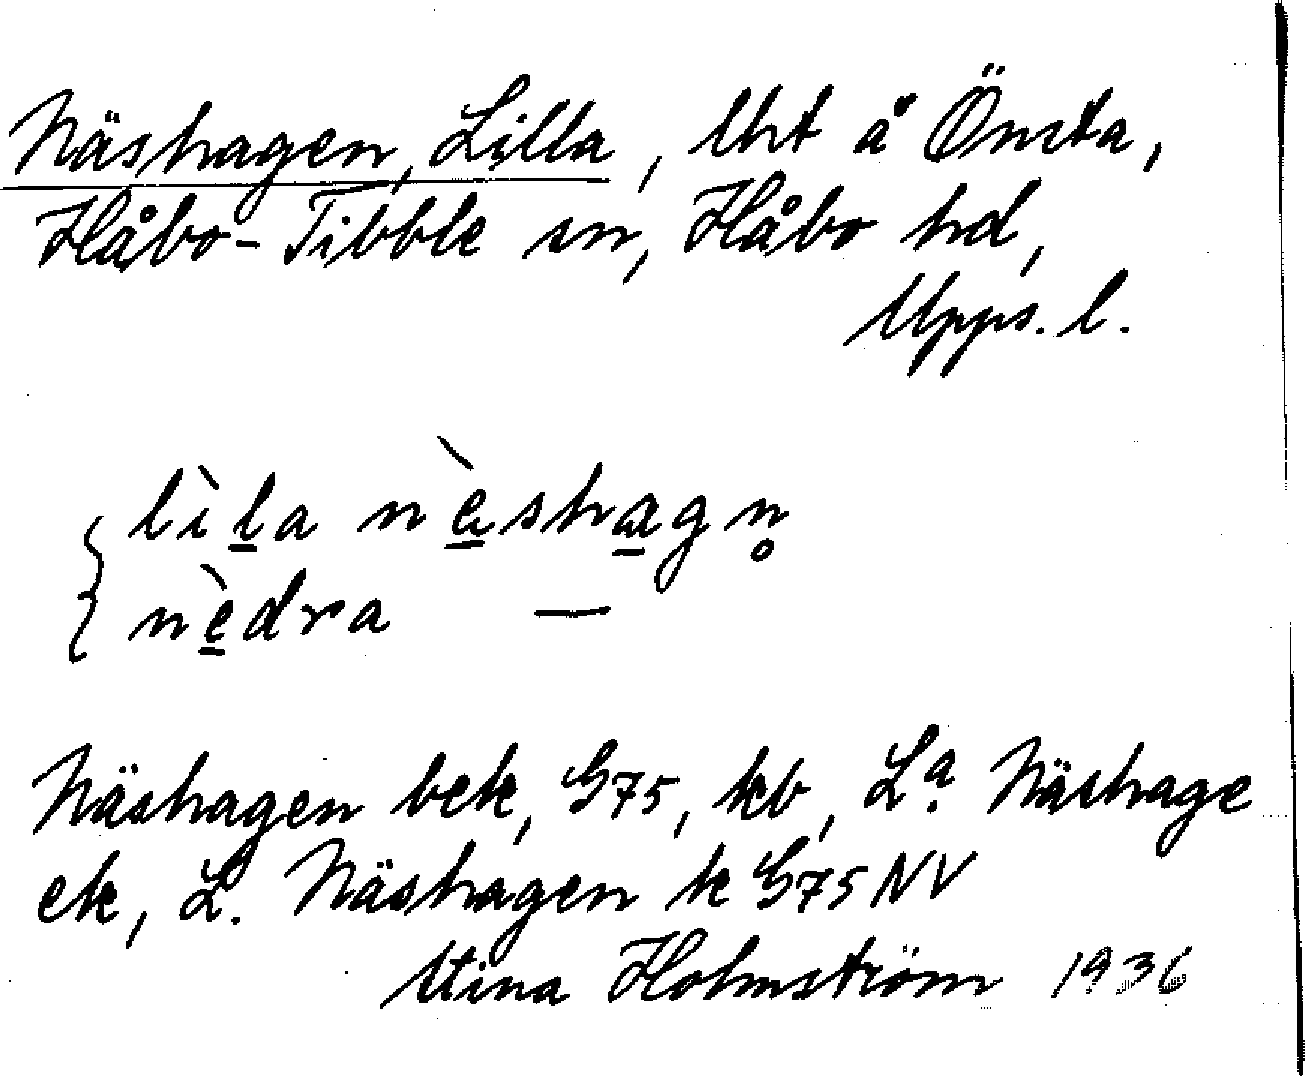 Näshagen, Lilla, lht å Önsta,
Håbo-Tibble sn, Håbo hd,
Upps. l.
lìla nèshagn̥
nèdra —
Näshagen bek, G75, kb, La. Näshage
ek, L. Näshagen k G75 NV
Stina Holmström 1936